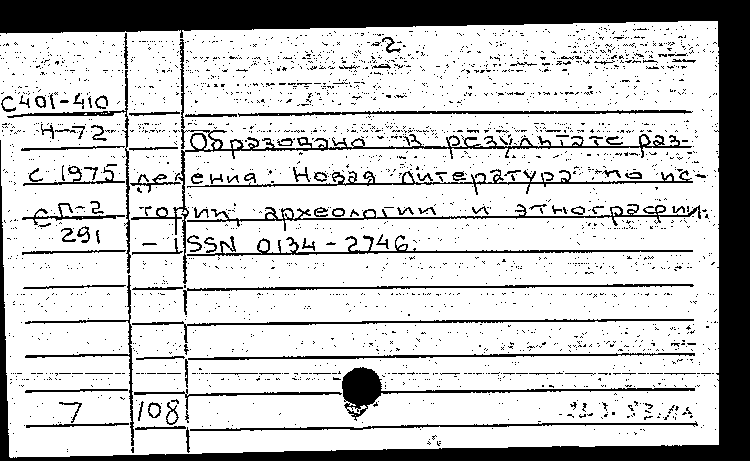 2
С401-410
Н-72
Образовано в результате раз-
с 1975 деления: Новая литература по ис-
С П-2 тории, археологии и этнографии.
291 - ISSN 0134-2746.
7 108